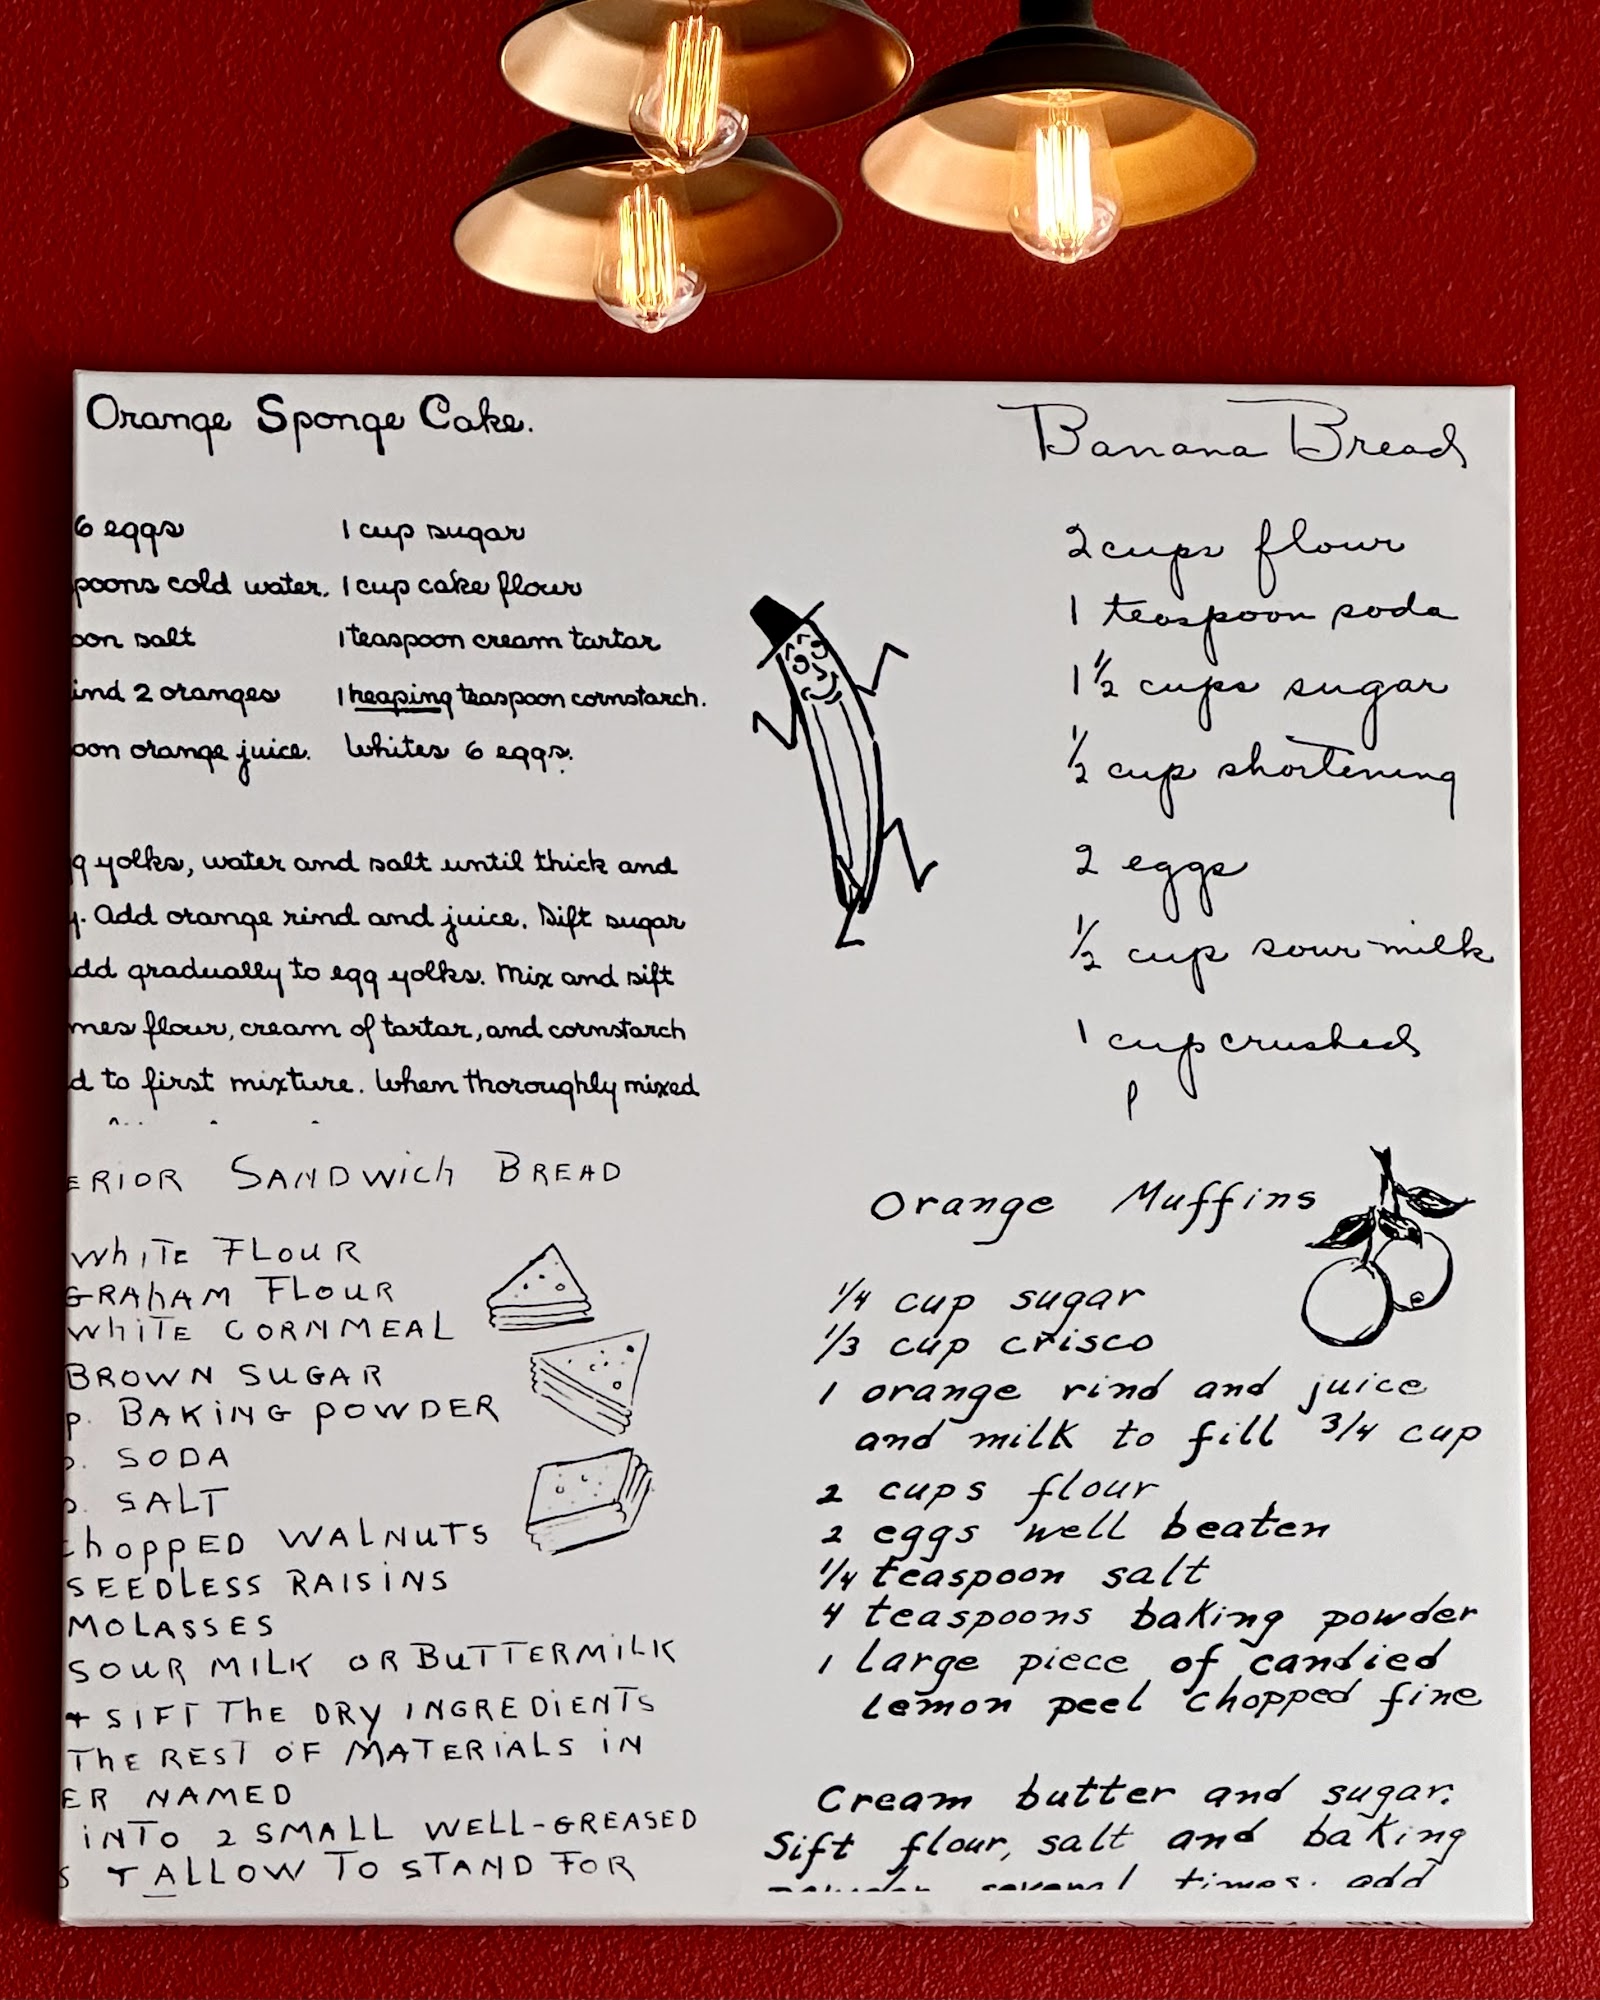 Orange Sponge Cake.
6 eggs
poons cold water.
oon salt
ind 2 oranges
oon orange juice.
1 cup sugar
1 cup cake flour
1 teaspoon cream tartar
1 heaping teaspoon cornstarch.
Whites 6 eggs.
g yolks, water and salt until thick and
y. Add orange rind and juice. Sift sugar
dd gradually to egg yolks. Mix and sift
mes flour, cream of tartar, and cornstarch
d to first mixture. When thoroughly mixed
Banana Bread
2 cups flour
1 teaspoon soda
1 1/2 cups sugar
1/2 cup shortening
2 eggs
1/2 cup sour milk
1 cup crushed
ERIOR SANDWich BREAD
WhiTE FLOUR
GRAhAM FLOUR
WhiTE CORNMEAL
BROWN SUGAR
p. BAKiNG POWDER
p. SODA
p. SALT
chopped WALNUTS
SEEDLESS RAISiNS
MOLASSES
SOUR MILK OR BUTTERMILK
+ SIFT THE DRY INGREDiENTS
THE REST OF MATERIALS iN
ER NAMED
iNTO 2 SMALL WELL-GREASED
S + ALLOW TO STAND FOR
Orange Muffins
1/4 cup sugar
1/3 cup crisco
1 orange rind and juice
and milk to fill 3/4 cup
2 cups flour
2 eggs well beaten
1/4 teaspoon salt
4 teaspoons baking powder
1 large piece of candied
lemon peel chopped fine
Cream butter and sugar.
Sift flour, salt and baking
powder several times. add